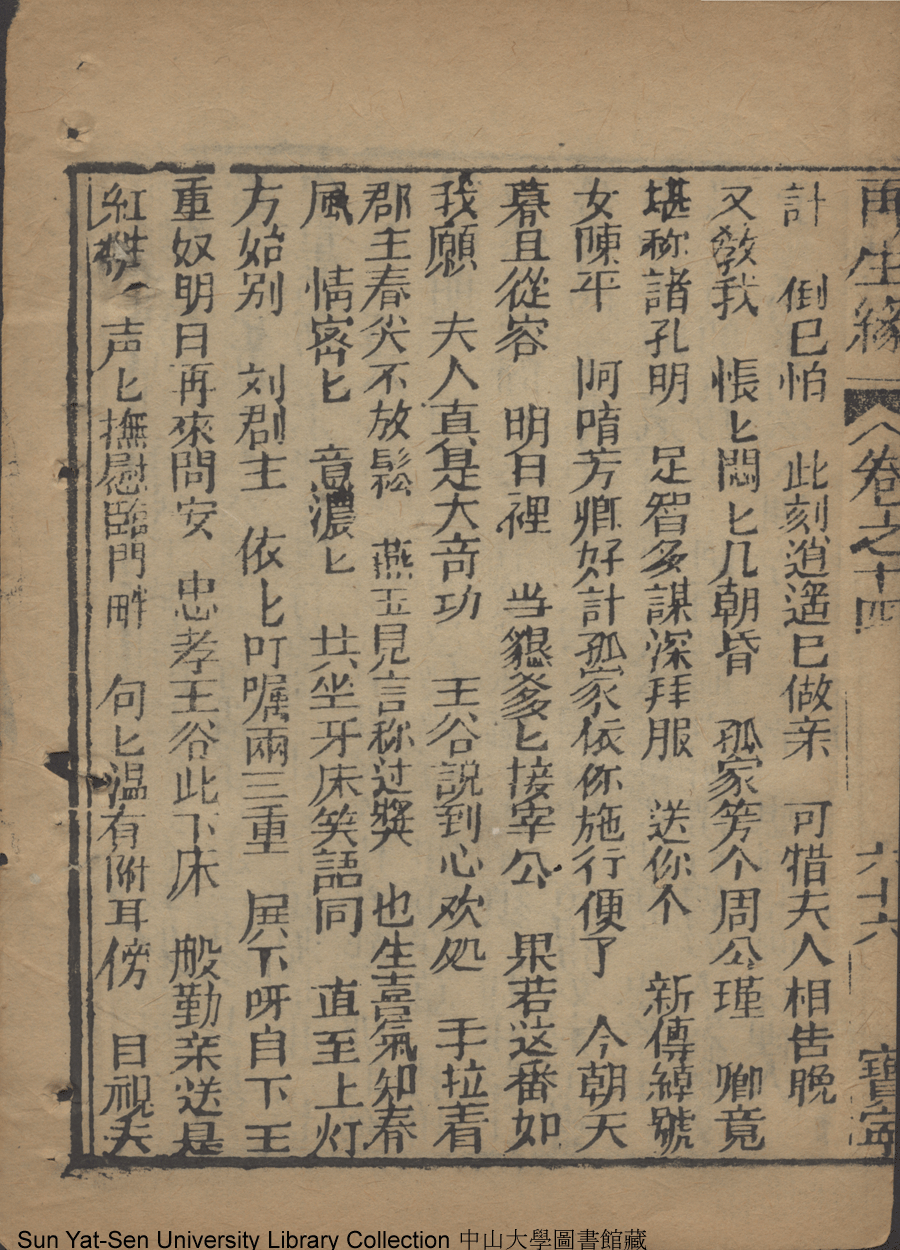 再生緣 卷之十四 六十六 寶寧
計 倒巳怕 此刻逍遥巳做亲 可惜夫人相告晚
又教我 悵匕悶匕几朝昏 孤家笑个周公瑾 卿竟
堪称諸孔明 足智多謀深拜服 送你个 新傳綽號
女陳平 阿唷芳卿好計孤家依你施行便了 今朝天
暮且從容 明日裡 当懇爹匕接宰公 果若这番如
我願 夫人真是大竒功 王爷説到心欢処 手拉着
郡主春尖不放鬆 燕玉見言称过獎 也生喜氣知春
風 情宻匕 意濃匕 共坐牙床笑語同 直至上灯
方始别 刘郡主 依匕叮嘱兩三重 殿下呀自下王
重奴明日再來問安 忠孝王爷此下床 般勤亲送是
紅粧 声匕撫慰臨門畔 句匕温有附耳傍 目視夫
Sun Yat-Sen University Library Collection 中山大學圖書館藏